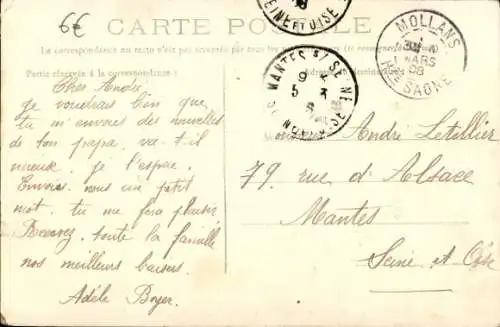 6€
CARTE POSTALE
SEINE ET OISE
La correspondance au recto n'est pas acceptée par tous les
Partie réservée à la correspondance
MANTES S/ SEINE
9
5 - 3
MOLLANS
1 MARS
08
HTE SAONE
Cher André
je voudrais bien que
tu m'envoies des nouvelles
de ton papa, va-t-il
mieux, je l'espère.
Envoies-nous un petit
mot, tu me fera plaisir
Recevez, toute la famille
nos meilleurs baisers.
Adèle Boyer.
André Letellier
79 rue d'Alsace
Mantes
Seine et Oise